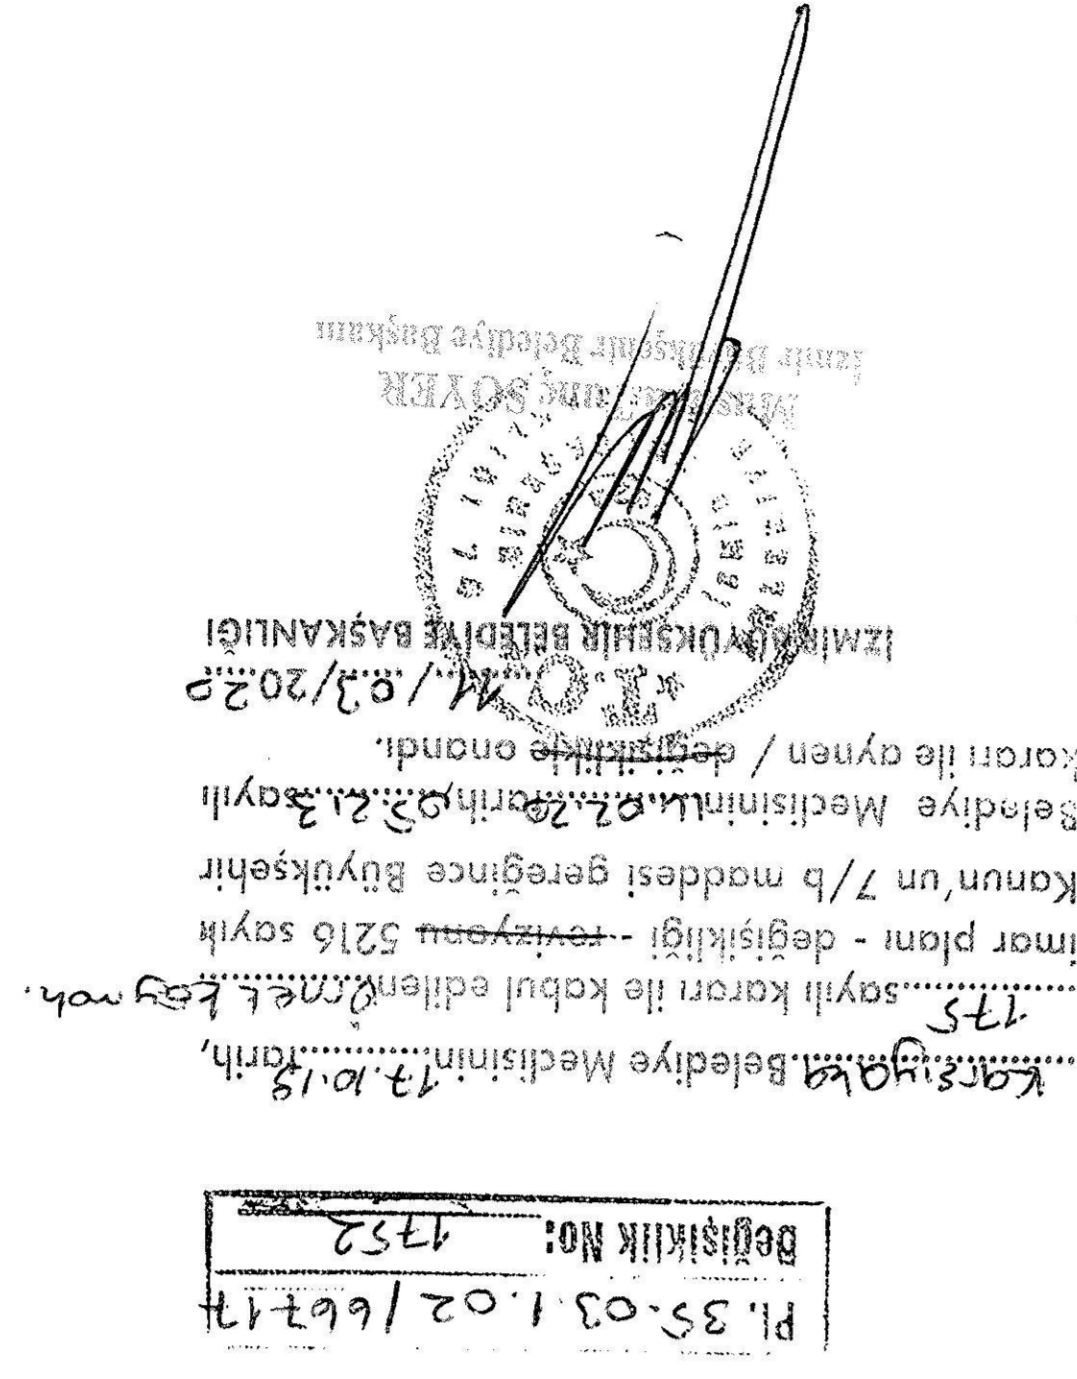 Pl. 35.03.1.02/66717
Değişiklik No: 1752
Karşıyaka Belediye Meclisinin 17.10.19 tarih,
175 sayılı kararı ile kabul edilen
imar planı - değişikliği - revizyonu 5216 sayılı
Kanun'un 7/b maddesi gereğince Büyükşehir
Belediye Meclisinin 14.02.20 tarih, 05.213 sayılı
kararı ile aynen / değişiklikle onandı.
11/03/2020
İZMİR BÜYÜKŞEHİR BELEDİYE BAŞKANLIĞI
T.C.
Mustafa Tunç SOYER
İzmir Büyükşehir Belediye Başkanı